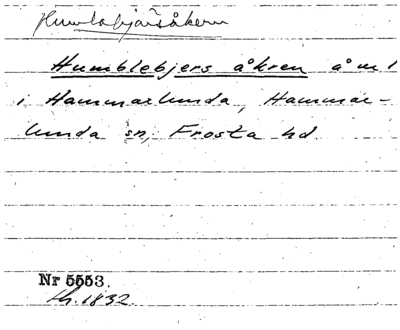 Humlabjärsåkern
Humblebjers åkren å № 1
i Hammarlunda, Hammar-
lunda sn, Frosta hd.
Nr 5553.
th. 1832.